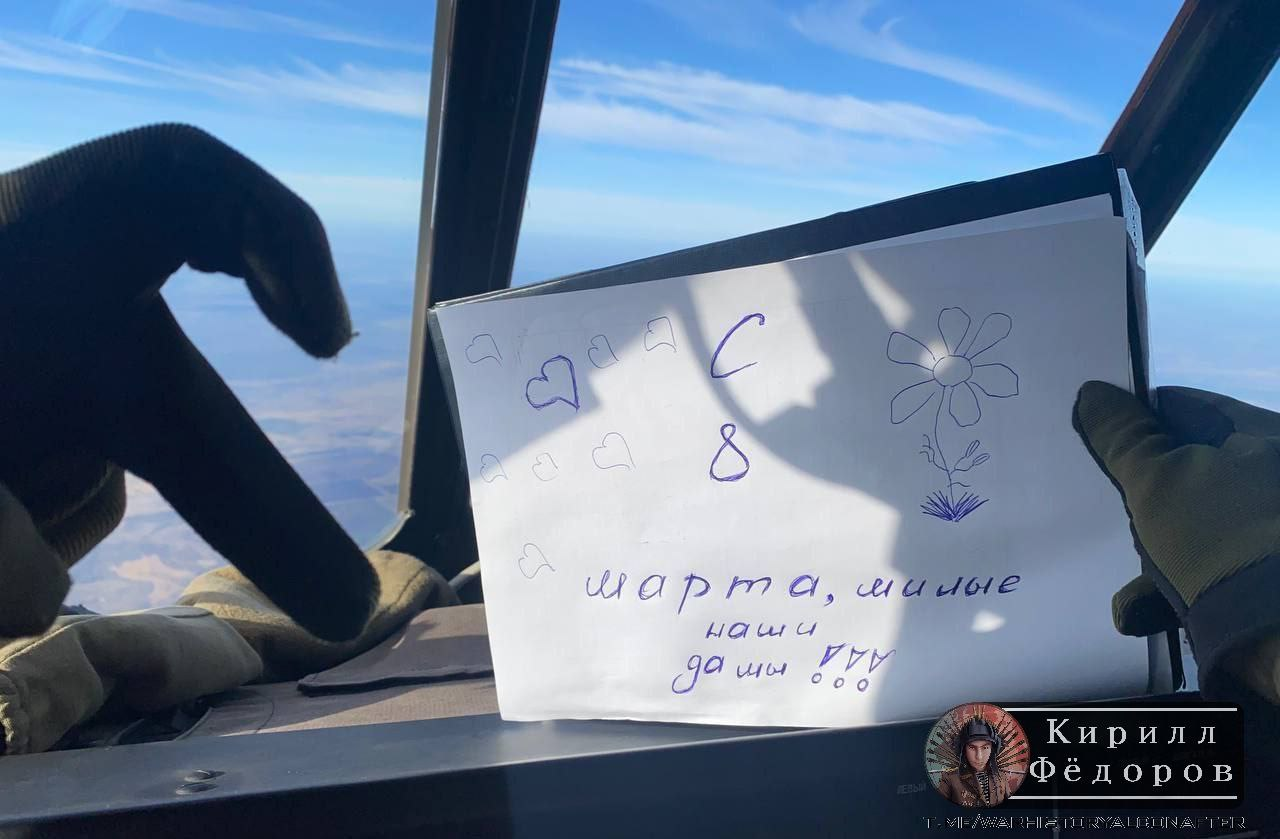 С
8
марта, милые
наши
дамы !!!
Кирилл
Фёдоров
T.ME/WARHISTORYALCONAFTER